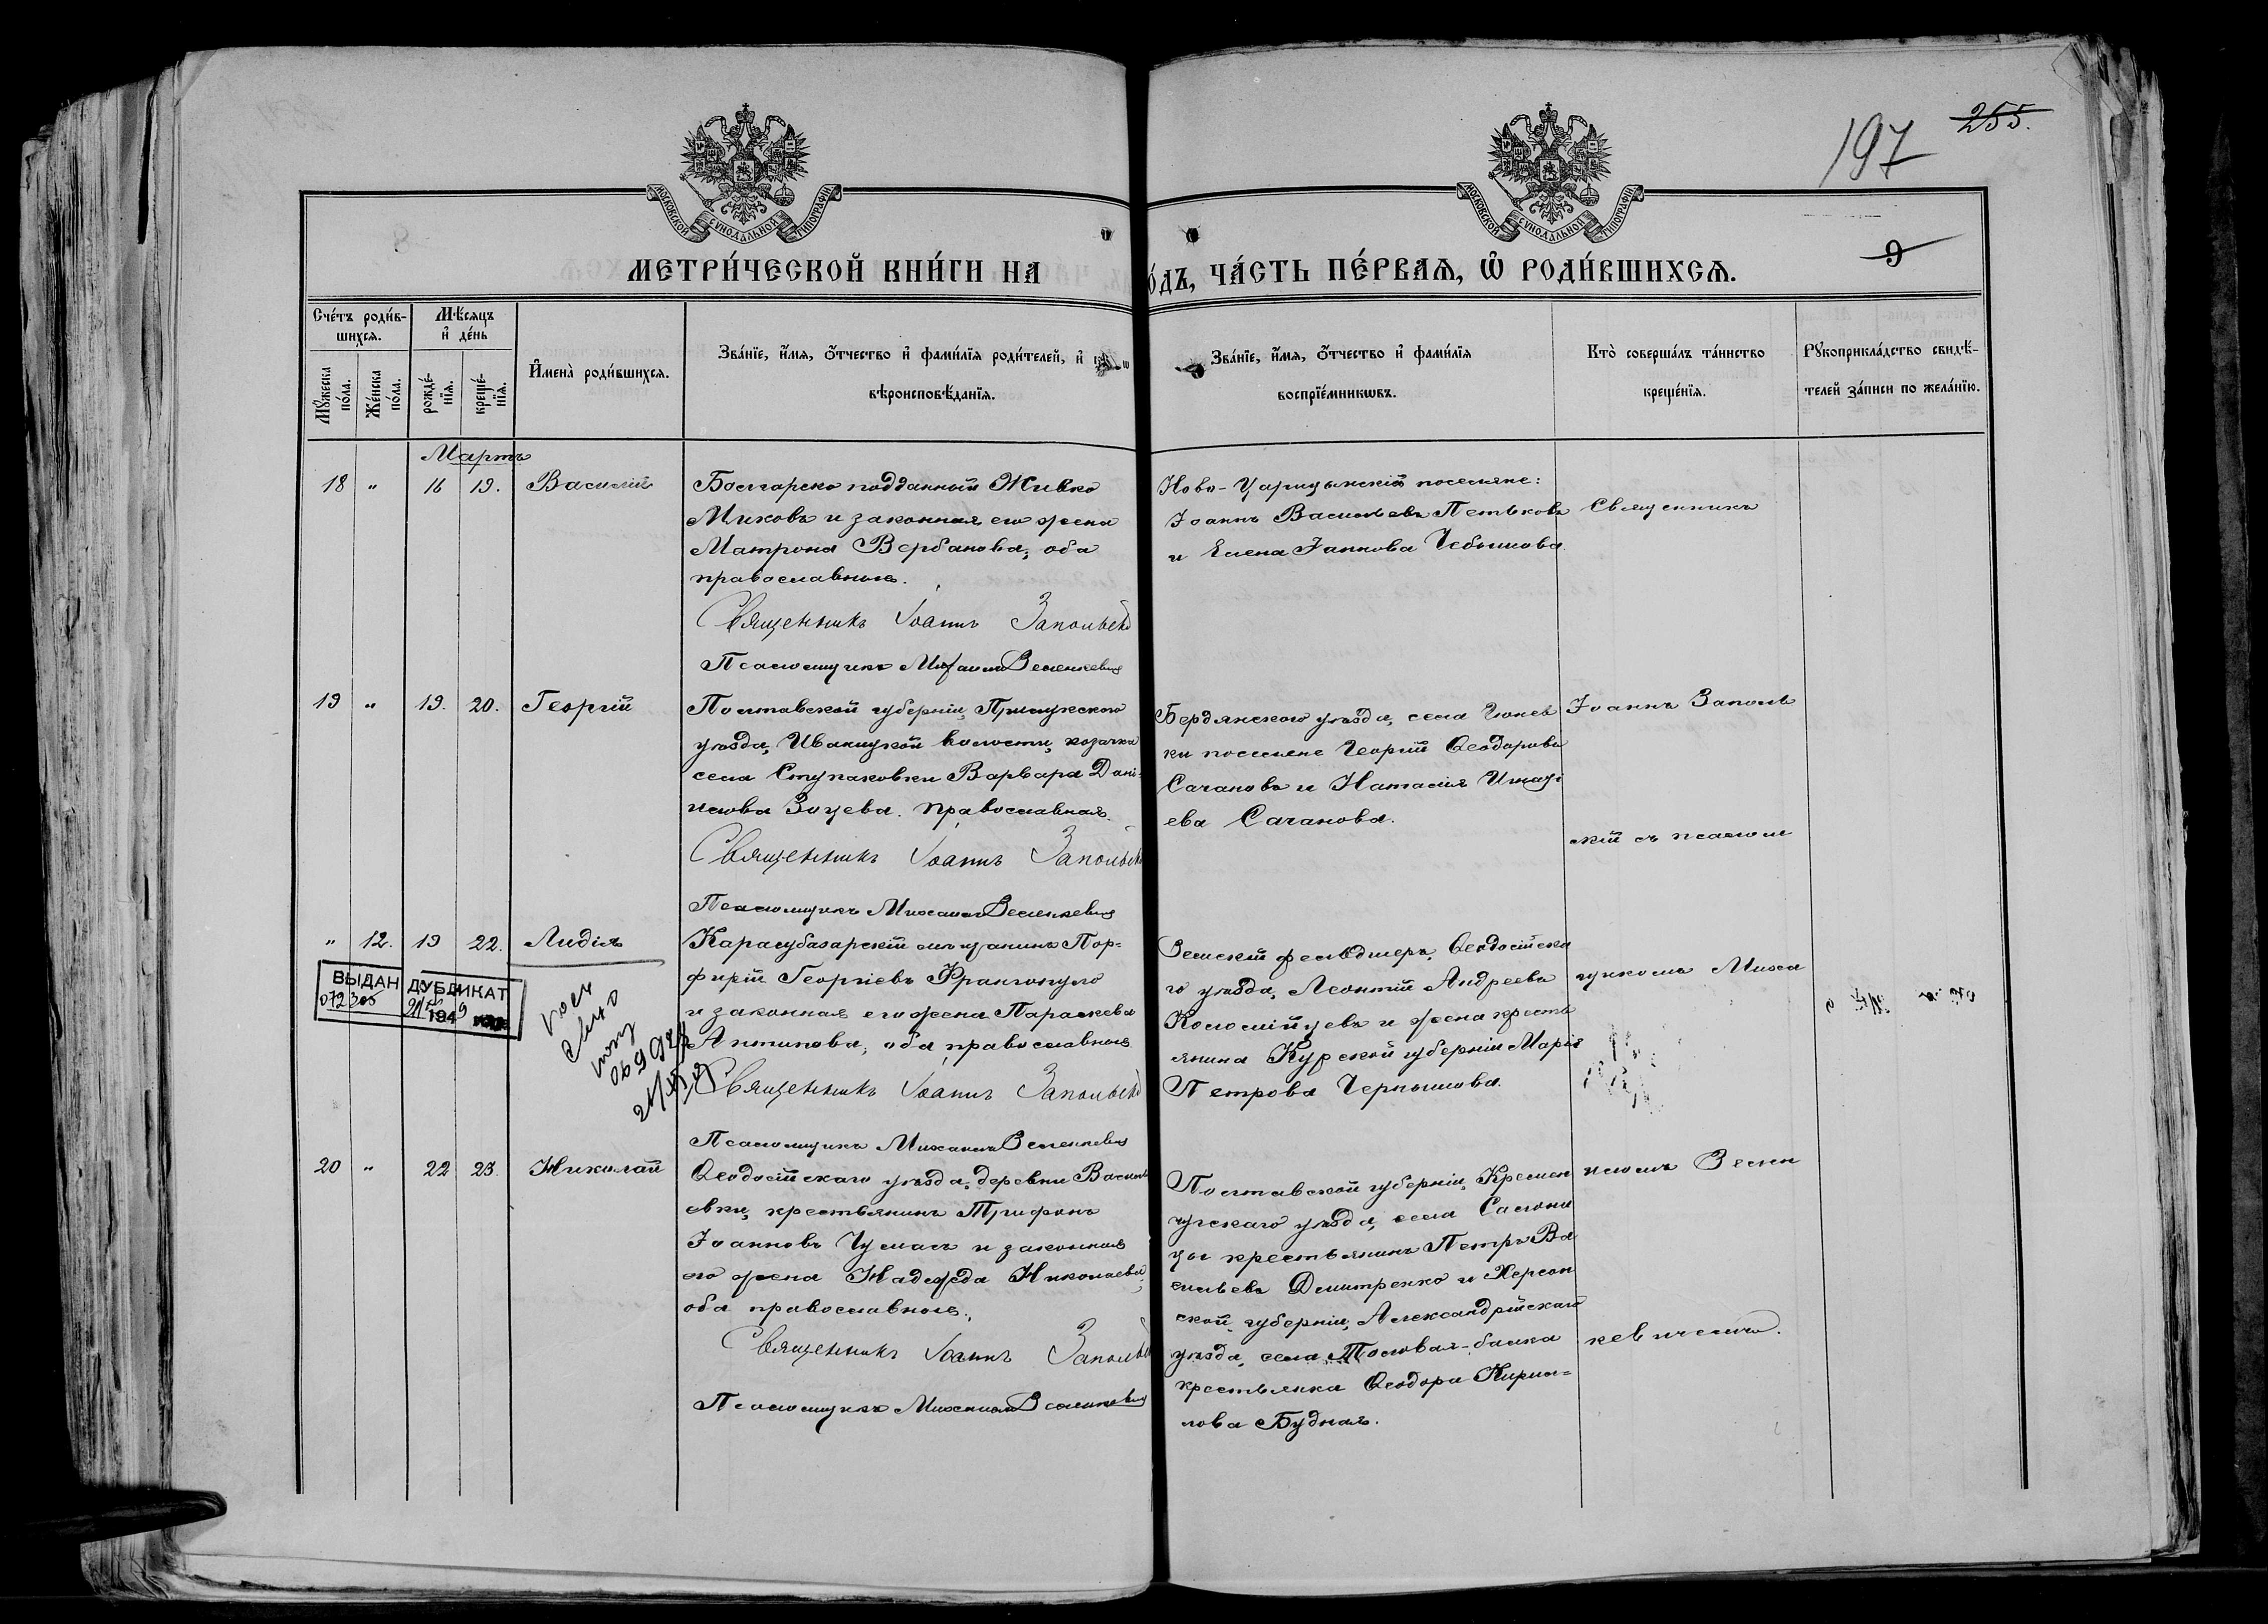 197
255.
МОСКОВСКОЙ СѴНОДАЛЬНОЙ ТИПОГРАФІИ
МОСКОВСКОЙ СѴНОДАЛЬНОЙ ТИПОГРАФІИ
9
МЕТРИ́ЧЕСКОЙ КНИ́ГИ НА
О́ДЪ, ЧА́СТЬ ПЕ́РВАѦ, Ѽ РОДИ́ВШИХСѦ.
Сче́тъ роди́в-
шихсѧ.
Мѣ́сѧцъ
и҆ де́нь
Мꙋ́жеска
по́ла.
Же́нска
по́ла.
рожде́-
нїѧ.
креще́-
нїѧ.
И҆мена̀ роди́вшихсѧ.
Зва́нїе, и҆́мѧ, ѻ҆́тчество и҆ фами́лїѧ роди́телей, и҆
вѣроисповѣ́данїѧ.
Зва́нїе, и҆́мѧ, ѻ҆́тчество и҆ фами́лїѧ
воспрїе́мникѡвъ.
Кто̀ соверша́лъ та́инство
креще́нїѧ.
Рꙋкоприкла́дство свидѣ́-
телей за́писи по жела́нїю.
Мартъ
18 " 16 19. Василій
Болгарско подданный Живко
Миковъ и законная его жена
Матрона Вербанова, оба
православные.
Священникъ Іоаннъ Запольскій
Псаломщикъ Михаилъ Веленкевич
Ново-Царицынскіе поселяне:
Іоаннъ Васильевъ Петьковъ
и Елена Іаннова
Священникъ
19 " 19. 20. Георгій
Полтавской губерніи, Прилукскаго
уѣзда, Иваницкой волости, козачка
села Ступаковки Варвара Дані-
илова Зоцева. Православная.
Священникъ Іоаннъ Запольскій
Псаломщикъ Михаилъ Веленкевич
Бердянскаго уѣзда, села Гюнев
ки поселяне Георгій Ѳеодоровъ
Сачановъ и Наталія
ева Сачанова.
Іоаннъ Заполь
скій съ псалом
" 12. 19 22. Лидія
Карасубазарскій мѣщанинъ Пор-
фирій Георгіевъ Франгопуло
и законная его жена Параскева
Антипова, оба православные
Священникъ Іоаннъ Запольскій
Псаломщикъ Михаилъ Веленкевич
Земскій фельдшеръ, Ѳеодосійска
го уѣзда, Леонтій Андреевъ
Коломійцевъ и жена кресть
янина Курской губерніи Марія
Петрова Чернышова.
щикомъ Миха
ВЫДАН ДУБЛИКАТ
072305
194 9
20 " 22 23. Николай
Ѳеодосійскаго уѣзда, деревни Василь
евки, крестьянинъ Трифонъ
Іоанновъ Чумакъ и законная
его жена Надежда Николаева,
оба православные.
Священникъ Іоаннъ Запольскій
Псаломщикъ Михаилъ Веленкевич
Полтавской губерніи, Кремен
чугскаго уѣзда, села Салони
цы крестьянинъ Петръ Ва
сильевъ Дмитренко и Херсон
ской губерніи, Александрійскаго
уѣзда, села балка
крестьянка Ѳеодора Кирил-
лова Будная.
иломъ Велен
кевичемъ.